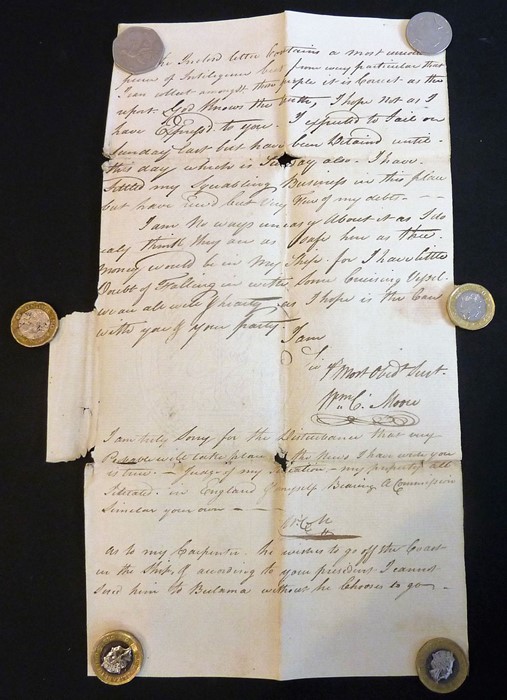 The Inclosd letter Contains a most
peice of Intelligence but from every particular that
I can collect amongst these people it is Correct as the
report. God knows the truth, I hope not as I
have Expressd to you. I expected to Sail on
Sunday last but have been Detaind until
this day which is Tuesday also. I have
Settled my Squabling Business in this place
but have Recd but Very Few of my debts
I am No ways uneasy About it as I do
realy think they are as safe here as there.
Money would be in My Ship. for I have little
Doubt of Falling in with Some Cruising Vessel.
we are all well & hearty as I hope is the Case
with you & your party I am
Sir Yr Most Obedt Servt.
Wm. C. Moore
I am truly Sorry for the Disturbance that very
Probable will take place if the News I have with you
is true. Judge of my situation my property all
Situated in England & myself Bearing A Commission
Similar your own
W. C M
as to my Carpenter he wishes to go off the Coast
in the Ship & according to your president I cannot
Send him to Bulama without he Chooses to go